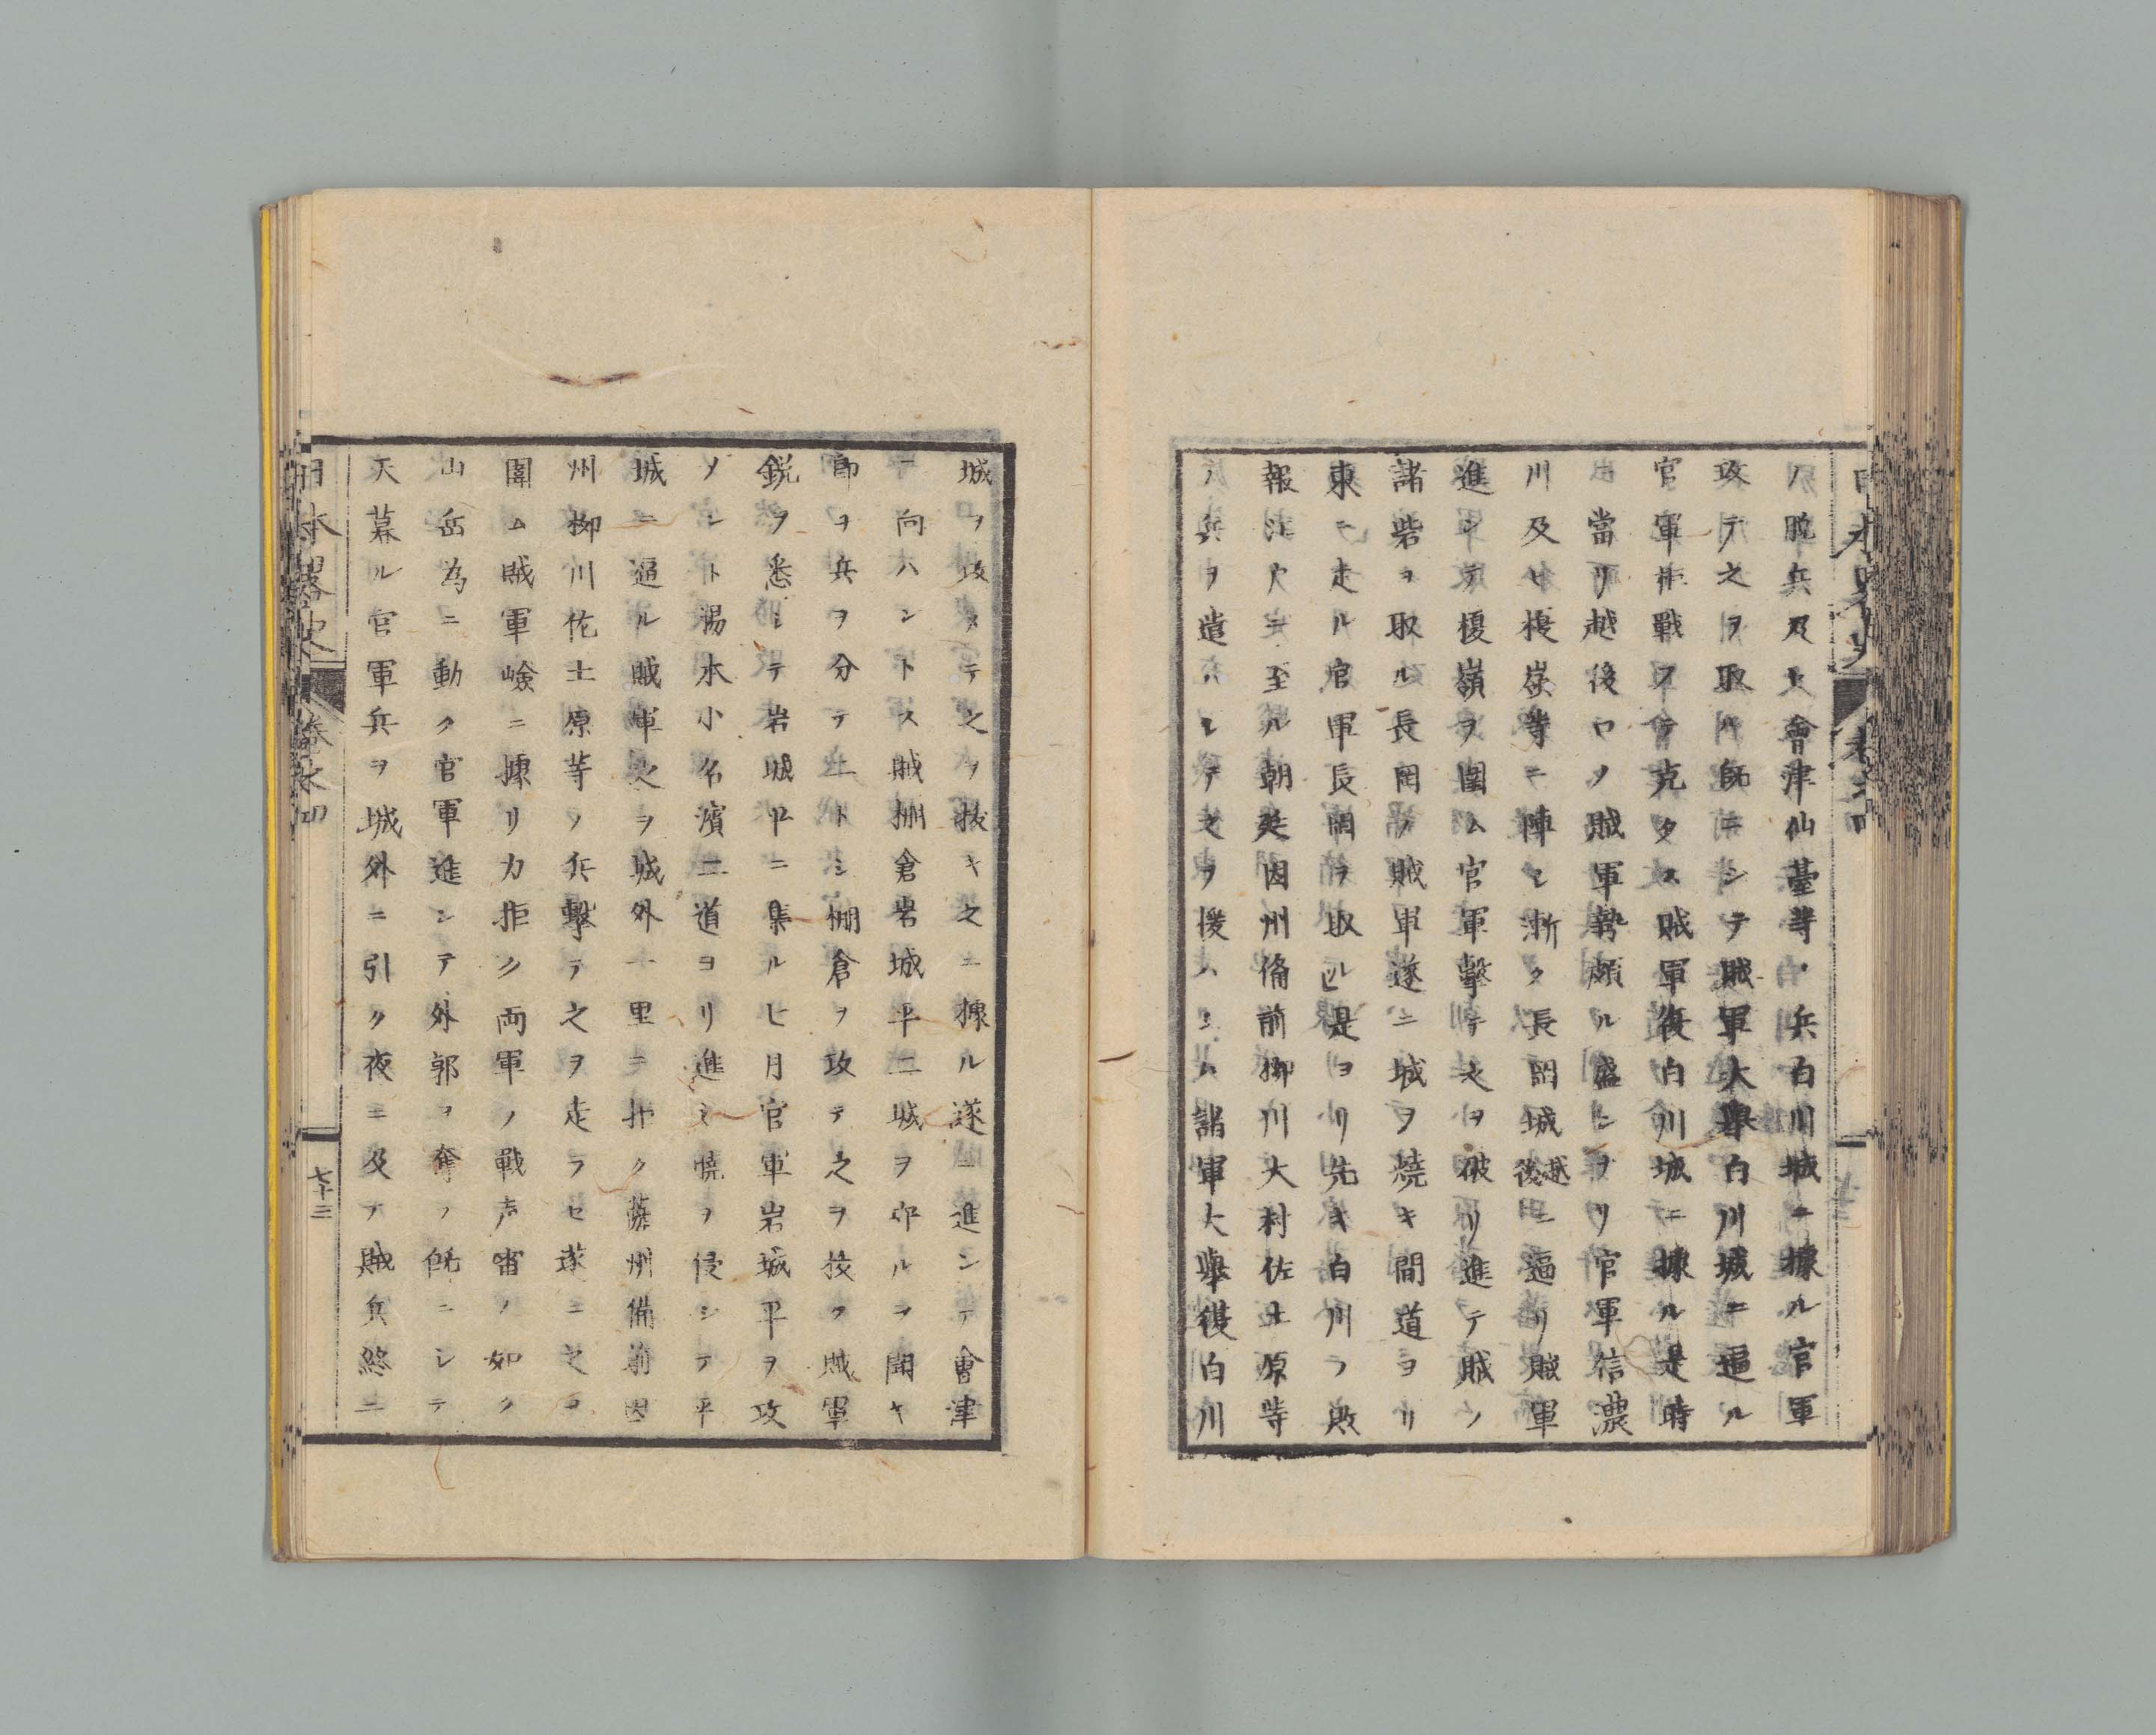 ノ脱兵及ヒ會津仙臺等ノ兵白川城ニ據ル官軍
攻テ之ヲ取ル既ニシテ賊軍大擧白川城ニ逼ル
官軍拒戰フテ克タス賊軍復白川城ニ據ル是時
ニ當リ越後口ノ賊軍勢頗ル盛ンヲリ官軍信濃
川及ヒ榎嶺等ニ陣シ漸ク長岡城越後ニ逼リ賊軍
進ンテ榎嶺ヲ圍ム官軍擊テ之ヲ破リ進テ賊ノ
諸砦ヲ取ル長岡ノ賊軍遂ニ城ヲ燒キ間道ヨリ
東ニ走ル官軍長岡ヲ取ル是ヨリ先キ白川ノ敗
報江戸ニ至ル朝廷因州俻前柳川大村佐土原等
ノ兵ヲ遣ハシテ之ヲ援ハシム諸軍大擧復白川
城ヲ攻メテ之ヲ抜キ之ニ據ル遂ニ進ンテ會津
ニ向ハントス賊棚倉岩城平二城ヲ守ルヲ聞キ
即ヲ兵ヲ分テ二トシ棚倉ヲ攻テ之ヲ抜ク賊軍
鋭ヲ悉シテ岩城平ニ集ル七月官軍岩城平ヲ攻
ンシト湯本小名濱二道ヨリ進ミ曉ヲ侵シテ平
城ニ逼ル賊軍之ヲ城外一里ニ拒ク藝州備前因
州柳川佐土原等ノ兵擊テ之ヲ走ラセ遂ニ之ヲ
圍ム賊軍嶮ニ據リ力拒ク両軍ノ戰声雷ノ如ク
山岳為ニ動ク官軍進ンテ外郭ヲ奪フ既ニシテ
天暮ル官軍兵ヲ城外ニ引ク夜ニ及テ賊兵終ニ
日本畧史 卷之四 七十三